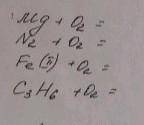 Mg + O₂ =
N₂ + O₂ =
Fe(II) + O₂ =
C₃H₆ + O₂ =